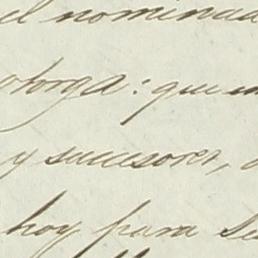 el nominad
otorga: que
y sucesores,
hoy para